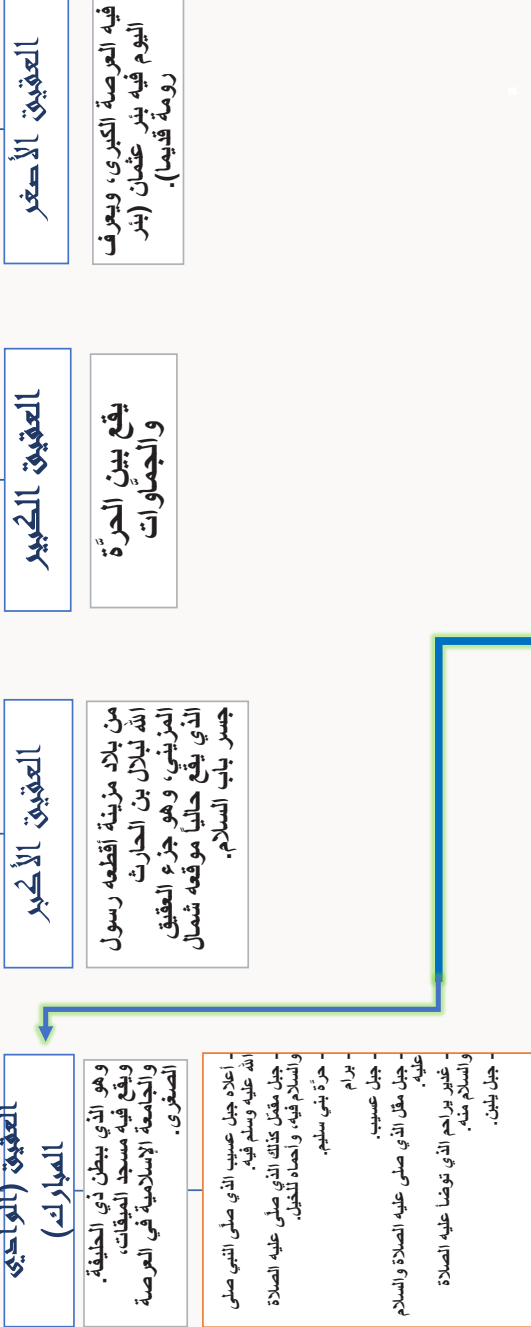 العقيق الأصغر
فيه العرصة الكبرى، ويعرف
اليوم فيه بئر عثمان (بئر
رومة قديما).
العقيق الكبير
يقع بين الحرَّة
والجمَّاوات
العقيق الأكبر
من بلاد مزينة أقطعه رسول
الله لبلال بن الحارث
المزيني، وهو جزء العقيق
الذي يقع حالياً موقعه شمال
جسر باب السلام.
العقيق (الوادي
المبارك)
وهو الذي ببطن ذي الحليفة.
ويقع فيه مسجد الميقات،
والجامعة الإسلامية في العرصة
الصغرى.
- أعلاه جبل عسيب الذي صلَّى النبي صلى
الله عليه وسلم فيه.
- جبل مقمّل كذلك الذي صلَّى عليه الصلاة
والسلام فيه، وأحماه للخيل.
- حرَّة بني سليم.
- برام
- جبل عسيب.
- جبل مقل الذي صلى عليه الصلاة والسلام
عليه.
- غدير يراحم الذي توضأ عليه الصلاة
والسلام منه.
- جبل يلبن.